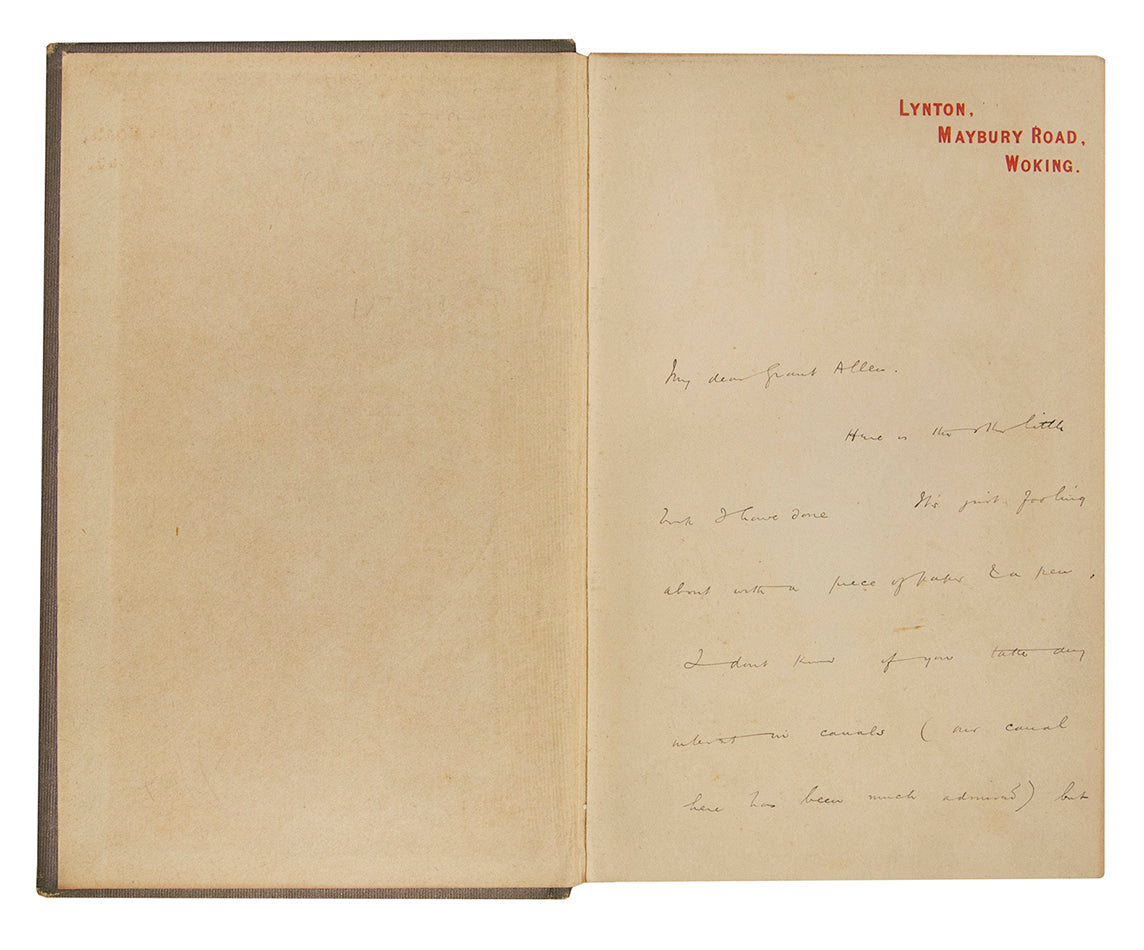 LYNTON,
MAYBURY ROAD,
WOKING.
My dear Grant Allen.
Here is the other little
book I have done It's just fooling
about with a piece of paper & a pen.
I dont know if you take any
interest in canals (our canal
here has been much admired) but